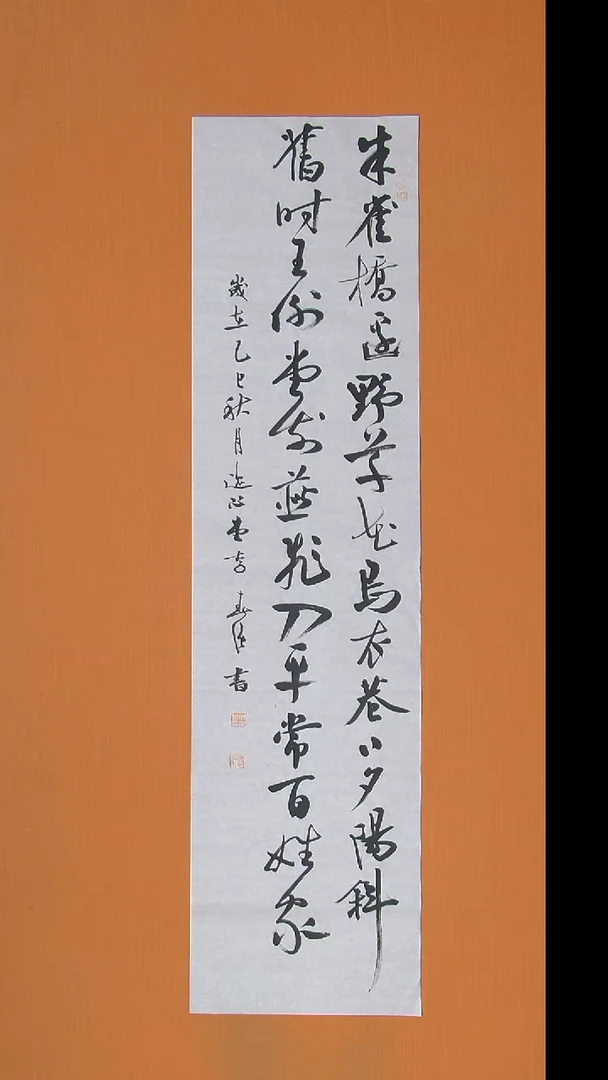 朱雀橋邊野草花烏衣巷口夕陽斜
舊時王謝堂前燕飛入平常百姓家
歲在乙巳秋月心堂李春書